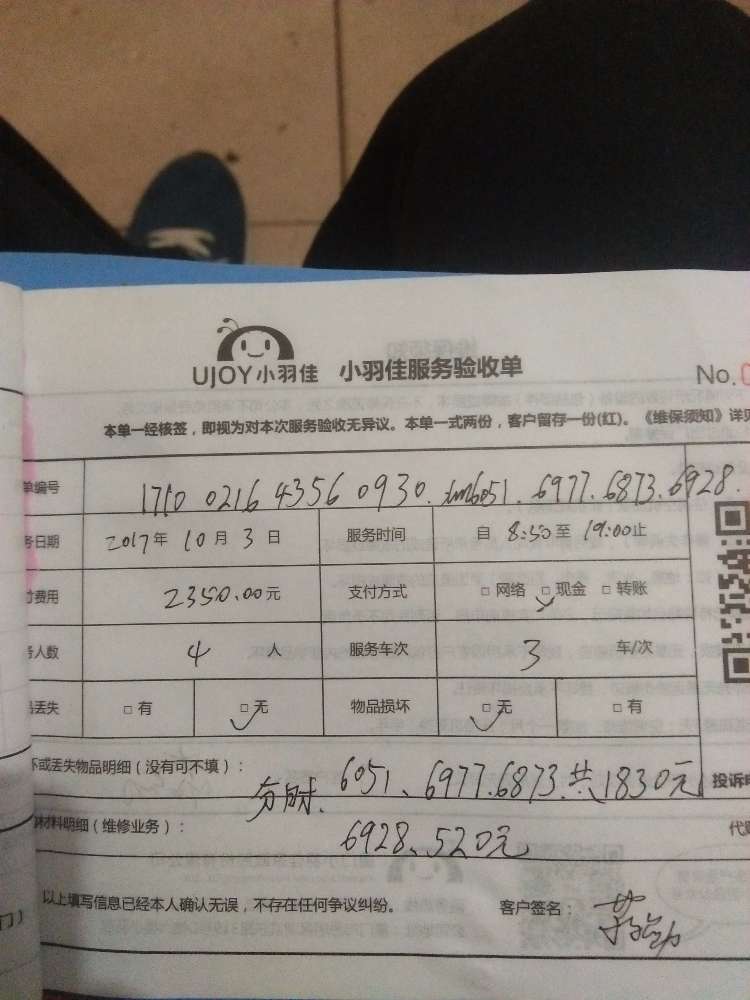 UJOY小羽佳 小羽佳服务验收单
No.0
本单一经核签，即视为对本次服务验收无异议。本单一式两份，客户留存一份(红)。《维保须知》详见
单编号 1710 0216 4356 0930. 6051. 6977. 6873. 6928.
务日期 2017年 10月 3日 服务时间 自 8:50至 19:00止
付费用 2350.00元 支付方式 □ 网络 □ 现金 □ 转账
务人数 4 人 服务车次 3 车/次
品丢失 □ 有 □ 无 物品损坏 □ 无 □ 有
坏或丢失物品明细（没有可不填）：
6051、6977.6873.共1830元 投诉电
材料明细（维修业务）： 6928、520元
代
以上填写信息已经本人确认无误，不存在任何争议纠纷。 客户签名：
门）